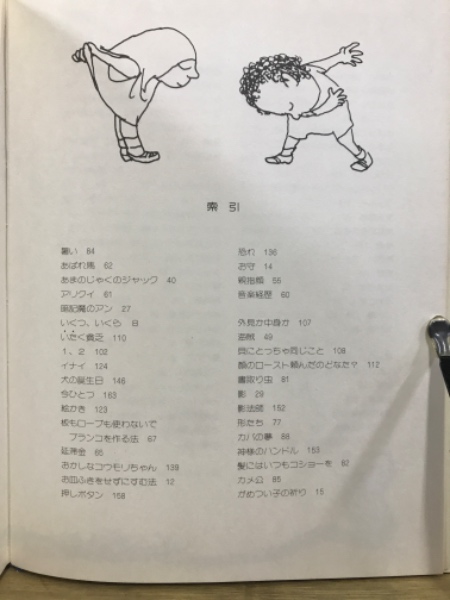 索引
暑い 84
あばれ馬 62
あまのじゃくのジャック 40
アリクイ 61
暗記魔のアン 27
いくつ、いくら 8
いたく貧乏 110
1、2 102
イナイ 124
犬の誕生日 146
今ひとつ 163
絵かき 123
板もロープも使わないで
ブランコを作る法 67
延滞金 65
おかしなコウモリちゃん 139
お皿ふきをせずにすむ法 12
押しボタン 158
恐れ 136
お守 14
親指姫 55
音楽経歴 60
外見か中身か 107
海賊 49
貝にとっちゃ同じこと 108
顔のロースト頼んだのどなた? 112
書取り虫 81
影 29
影法師 152
形たち 77
カバの夢 88
神様のハンドル 153
髪にはいつもコショーを 92
カメ公 85
がめつい子の祈り 15